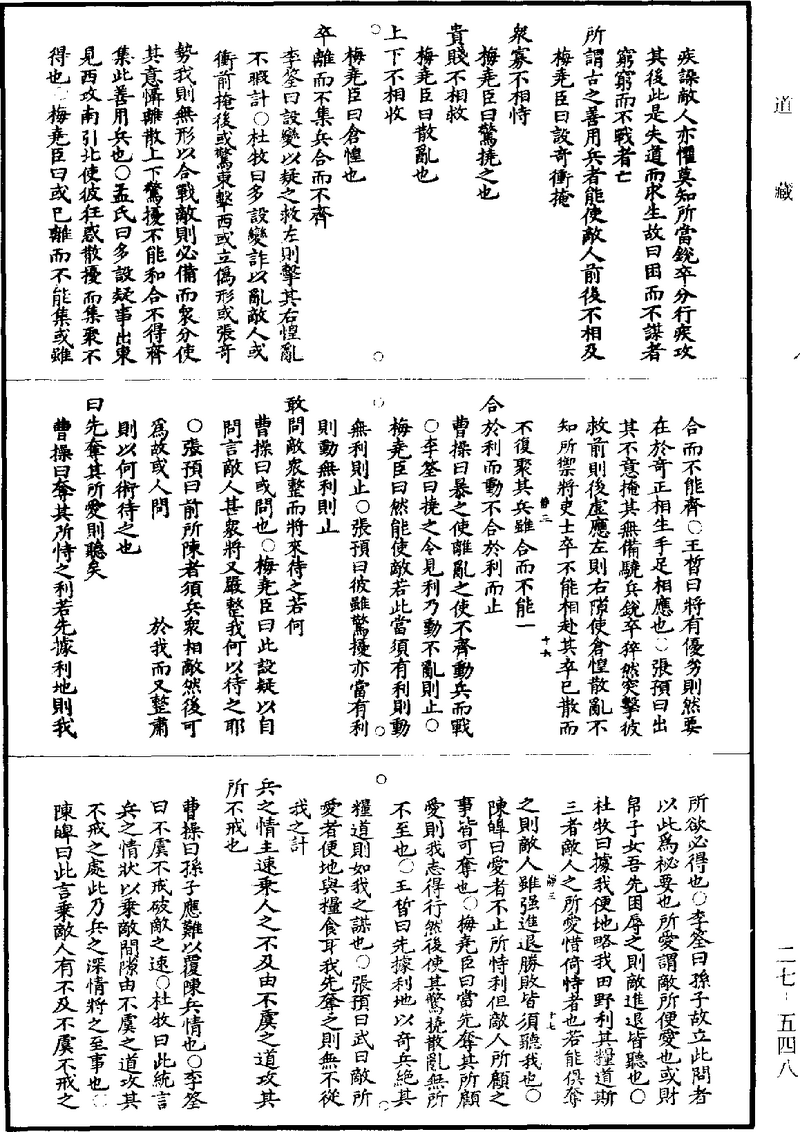 道藏
疾譟敵人亦懼莫知所當銳卒分行疾攻
其後此是失道而求生故曰困而不謀者
窮窮而不戰者亡
所謂古之善用兵者能使敵人前後不相及
梅堯臣曰設奇衝掩
衆寡不相恃
梅堯臣曰驚撓之也
貴賤不相救
梅堯臣曰散亂也
上下不相收
梅堯臣曰倉惶也
卒離而不集兵合而不齊
李筌曰設變以疑之救左則擊其右惶亂
不暇計○杜牧曰多設變詐以亂敵人或
衝前掩後或驚東擊西或立僞形或張奇
勢我則無形以合戰敵則必備而衆分使
其意懾離散上下驚擾不能和合不得齊
集此善用兵也○孟氏曰多設疑事出東
見西攻南引北使彼狂惑散擾而集聚不
得也○梅堯臣曰或已離而不能集或雖
合而不能齊○王晳曰將有優劣則然要
在於奇正相生手足相應也○張預曰出
其不意掩其無備驍兵銳卒猝然突擊彼
救前則後虛應左則右隙使倉惶散亂不
知所禦將吏士卒不能相赴其卒已散而
不復聚其兵雖合而不能一
靜三
十六
合於利而動不合於利而止
曹操曰暴之使離亂之使不齊動兵而戰
○李筌曰撓之令見利乃動不亂則止○
梅堯臣曰然能使敵若此當須有利則動
無利則止○張預曰彼雖驚擾亦當有利
則動無利則止
敢問敵衆整而將來待之若何
曹操曰或問也○梅堯臣曰此設疑以自
問言敵人甚衆將又嚴整我何以待之耶
○張預曰前所陳者須兵衆相敵然後可
爲故或人問 於我而又整肅
則以何術待之也
曰先奪其所愛則聽矣
曹操曰奪其所恃之利若先據利地則我
所欲必得也○李筌曰孫子故立此問者
以此爲祕要也所愛謂敵所便愛也或財
帛子女吾先困辱之則敵進退皆聽也○
杜牧曰據我便地略我田野利其糧道斯
三者敵人之所愛惜倚恃者也若能俱奪
之則敵人雖强進退勝敗皆須聽我也○
靜三
十七
陳皥曰愛者不止所恃利但敵人所顧之
事皆可奪也○梅堯臣曰當先奪其所顧
愛則我志得行然後使其驚撓散亂無所
不至也○王晳曰先據利地以奇兵絕其
糧道則如我之謀也○張預曰武曰敵所
愛者便地與糧食耳我先奪之則無不從
我之計
兵之情主速乘人之不及由不虞之道攻其
所不戒也
曹操曰孫子應難以覆陳兵情也○李筌
曰不虞不戒破敵之速○杜牧曰此統言
兵之情狀以乘敵間隙由不虞之道攻其
不戒之處此乃兵之深情將之至事也○
陳皥曰此言乘敵人有不及不虞不戒之
二七-五四八